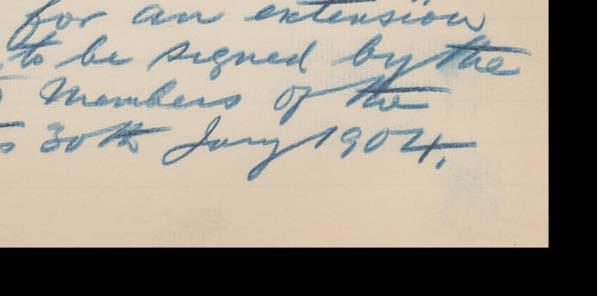 for an extension
to be signed by the
Members of the
30th Jany 1904.